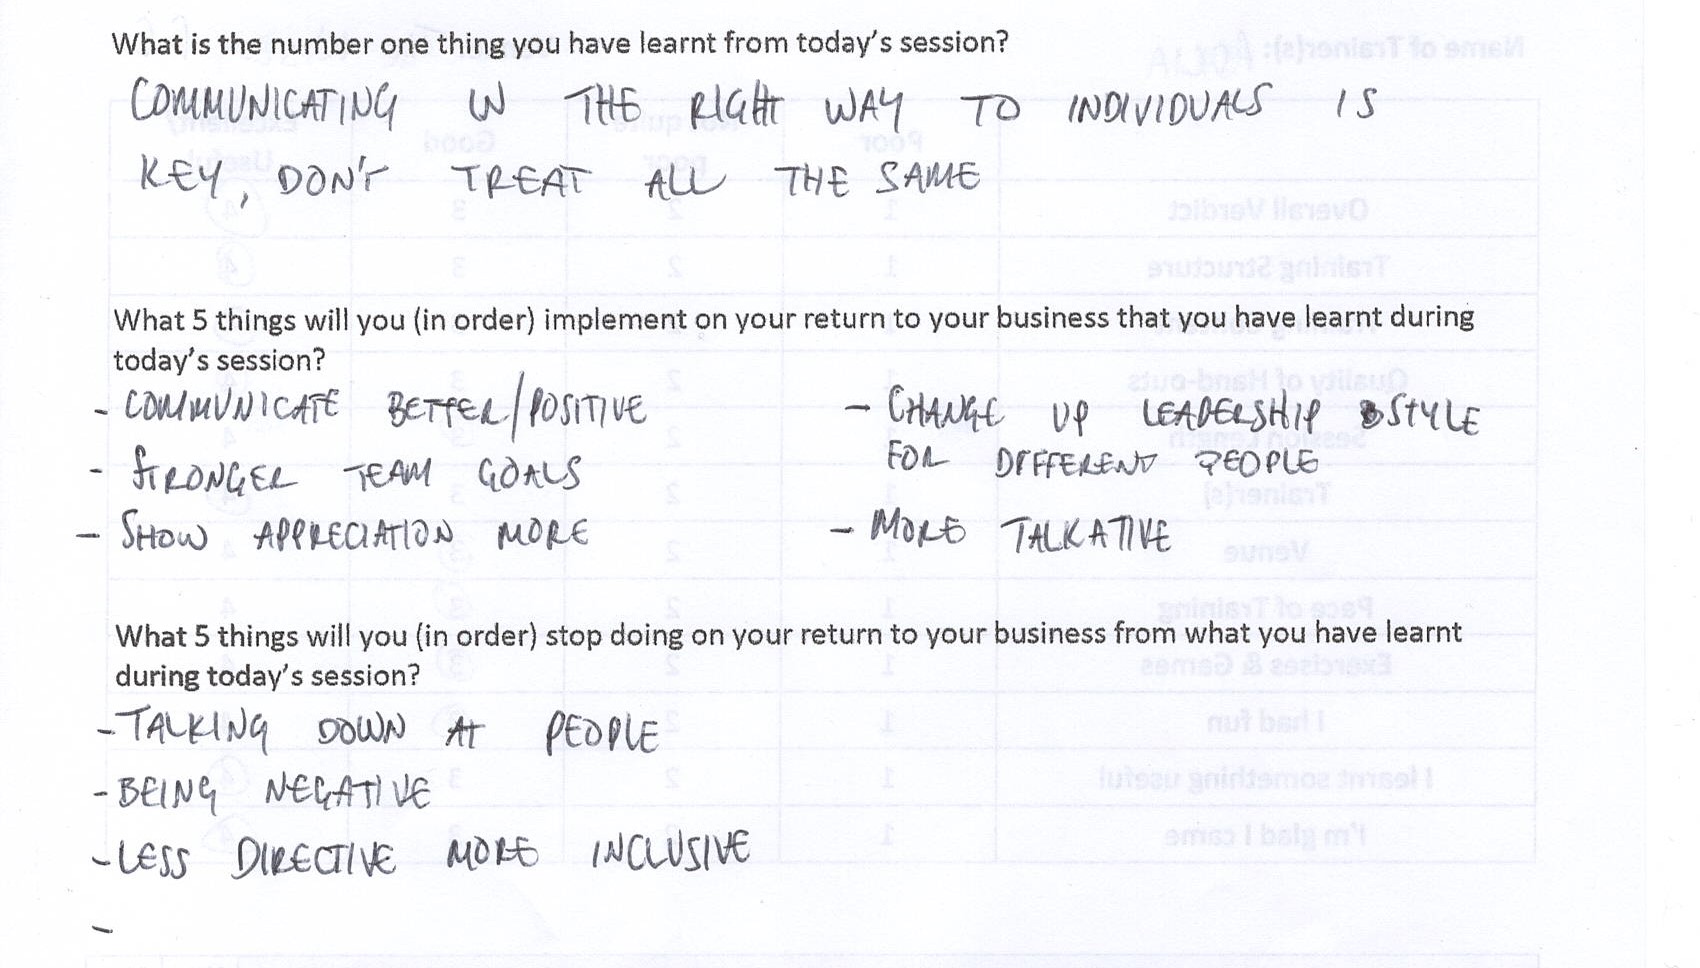 What is the number one thing you have learnt from today's session?
COMMUNICATING IN THE RIGHT WAY TO INDIVIDUALS IS
KEY, DON'T TREAT ALL THE SAME
What 5 things will you (in order) implement on your return to your business that you have learnt during
today's session?
- COMMUNICATE BETTER/POSITIVE
- STRONGER TEAM GOALS
- SHOW APPRECIATION MORE
- CHANGE UP LEADERSHIP STYLE
FOR DIFFERENT PEOPLE
- MORE TALKATIVE
What 5 things will you (in order) stop doing on your return to your business from what you have learnt
during today's session?
- TALKING DOWN AT PEOPLE
- BEING NEGATIVE
- LESS DIRECTIVE MORE INCLUSIVE
-